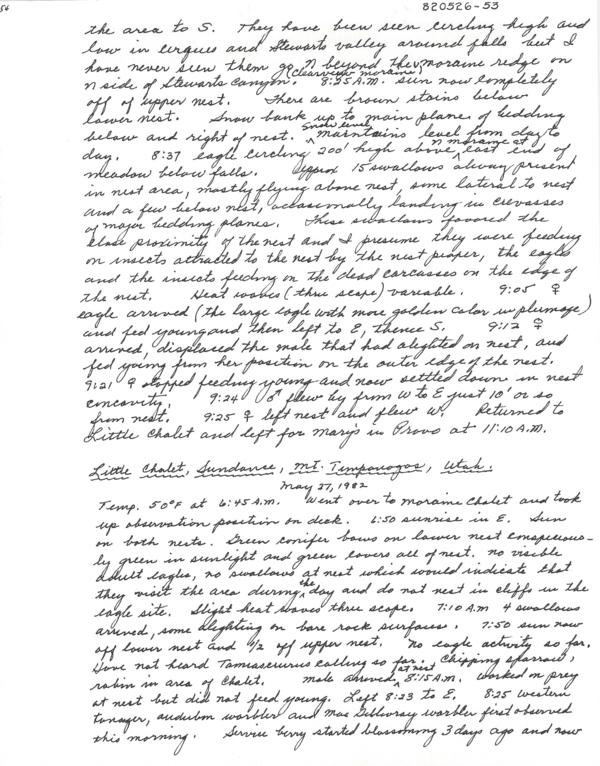 54
820526-53
the area to S. They have been seen circling high and
low in cirques and Stewarts valley around falls but I
have never seen them go N beyond the moraine ridge on
(Clearview moraine)
N side of Stewarts Canyon. 8:35 A.M. sun now completely
off of upper nest. There are brown stains below
lower nest. Snow bank up to main plane of bedding
below and right of nest. Snow level maintains level from day to
day. 8:37 eagle circling 200' high above N moraine at east end of
meadow below falls. Approx 15 swallows always present
in nest area, mostly flying above nest, some lateral to nest
and a few below nest, occasionally landing in crevasses
of major bedding planes. These swallows favored the
close proximity of the nest and I presume they were feeding
on insects attracted to the nest by the nest proper, the eagles
and the insects feeding on the dead carcasses on the edge of
the nest. Heat waves (thru scope) variable. 9:05 ♀
eagle arrived (the large eagle with more golden color in plumage)
and fed young and then left to E, thence S. 9:12 ♀
arrived, displaced the male that had alighted on nest, and
fed young from her position on the outer edge of the nest.
9:21 ♀ stopped feeding young and now settled down in nest
concavity. 9:24 ♂ flew by from W to E just 10' or so
from nest. 9:25 ♀ left nest and flew W. Returned to
Little Chalet and left for Mary's in Provo at 11:10 A.M.
Little Chalet, Sundance, Mt. Timponogos, Utah.
May 27, 1982
Temp. 50°F at 6:45 A.M. Went over to Moraine Chalet and took
up observation position on deck. 6:50 sunrise in E. Sun
on both nests. Green conifer bows on lower nest conspicuous-
ly green in sunlight and green covers all of nest. No visible
adult eagles, no swallows at nest which would indicate that
they visit the area during the day and do not nest in cliffs in the
eagle site. Slight heat waves thru scope. 7:10 A.M 4 swallows
arrived, some alighting on bare rock surfaces. 7:50 sun now
off lower nest and 1/2 off upper nest. No eagle activity so far.
Have not heard Tamiasciurus calling so far. Chipping sparrow,
robin in area of Chalet. Male arrived at nest 8:15 A.M. worked on prey
at nest but did not feed young. Left 8:23 to E. 8:25 western
tanager, audubon warbler and MacGillivray warbler first observed
this morning. Service berry started blossoming 3 days ago and now